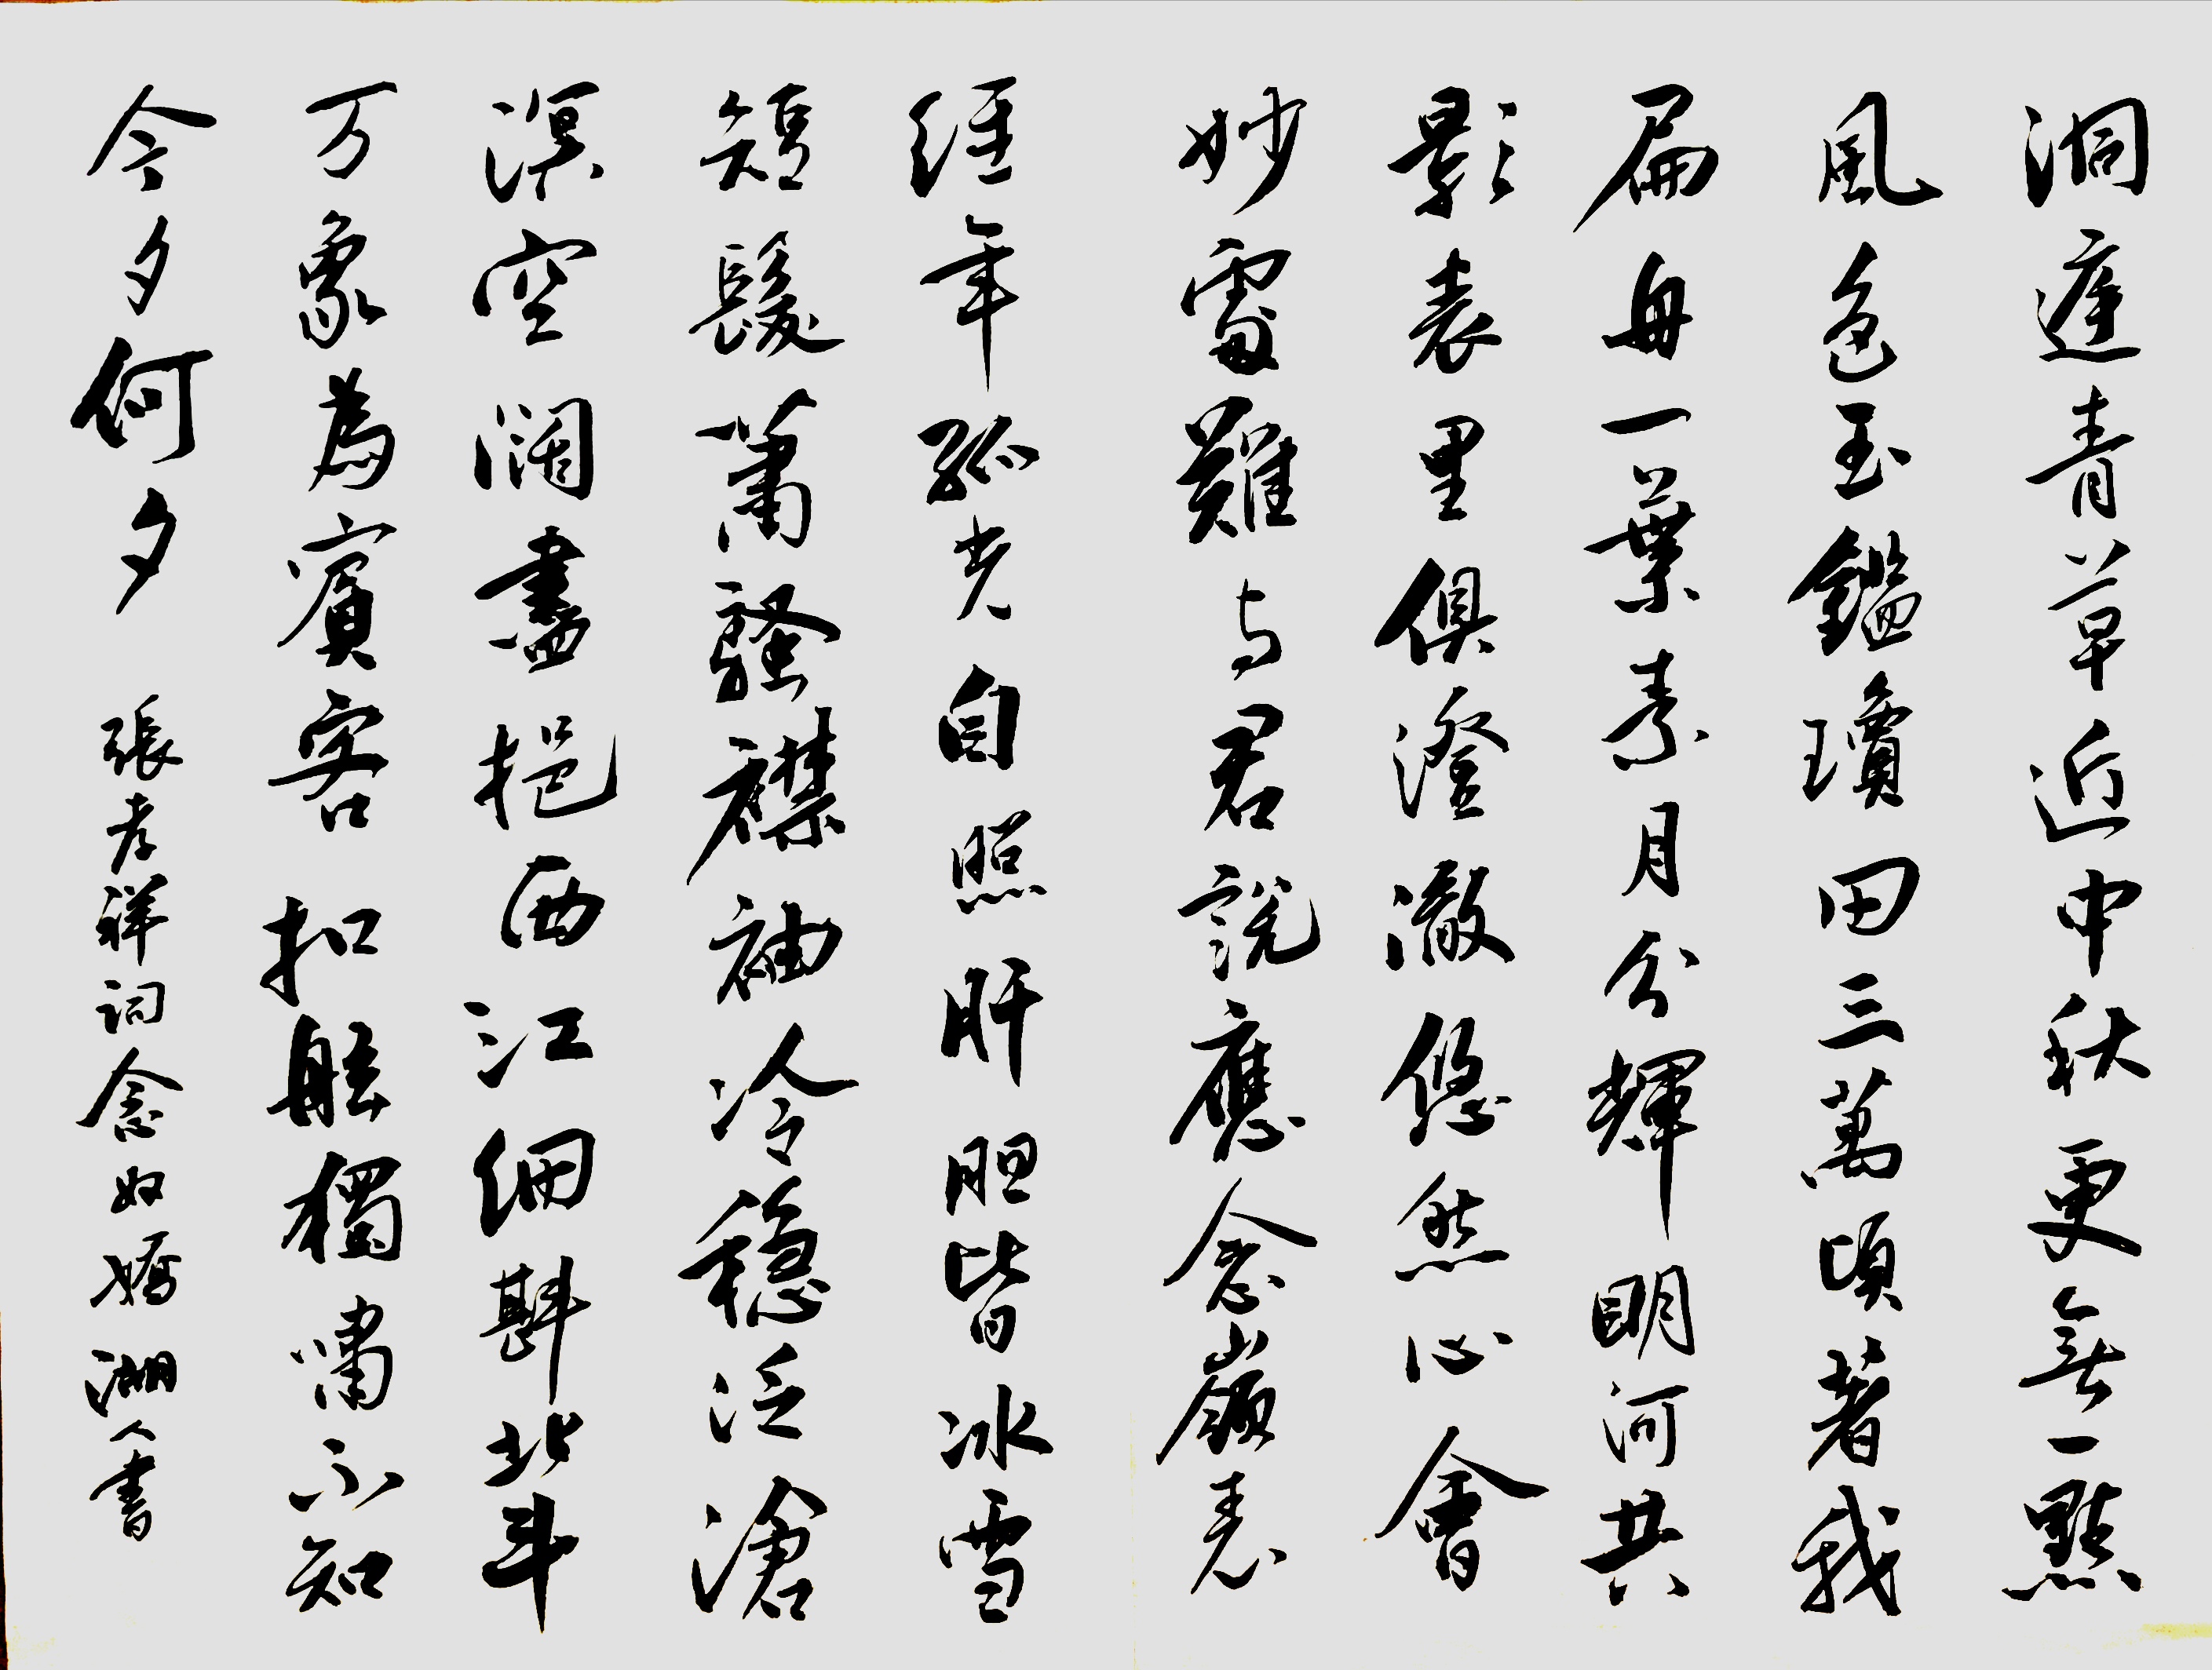 洞庭青草近中秋更無一點
風色玉鑑瓊田三萬頃著我
扁舟一葉素月分輝明河共
影表里俱澄澈悠然心會
妙處難与君説應念嶺表
經年孤光自照肝胆皆冰雪
短髮蕭騷襟袖冷穩泛滄
溟空闊盡挹西江細斟北斗
万象為賓客扣舷獨嘯不知
今夕何夕 張孝祥詞念奴嬌 湖人書